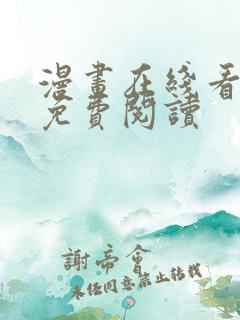 漫畫在綫看
免費閱讀
謝帝會
未经同意禁止转载